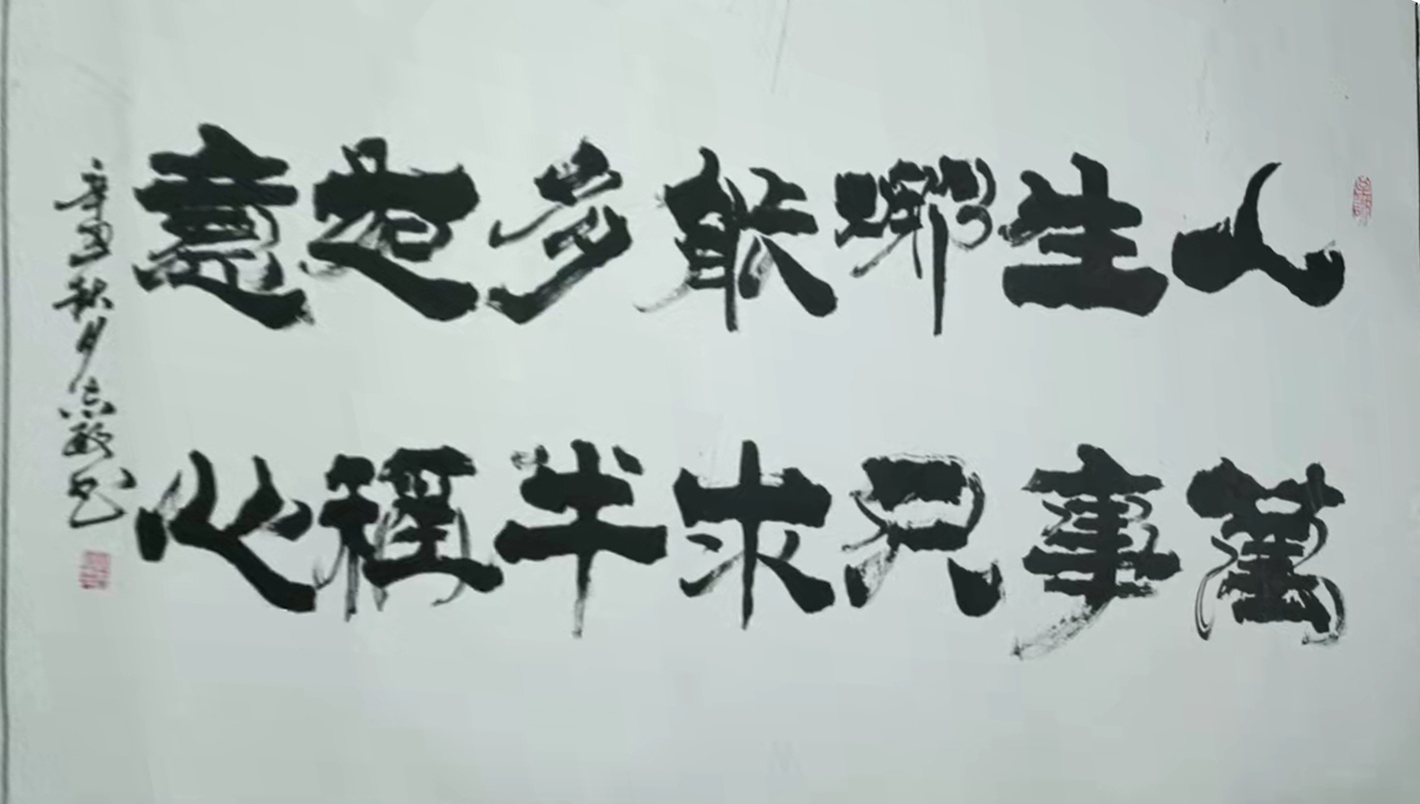 人生哪能多如意
萬事只求半稱心
辛丑秋月书